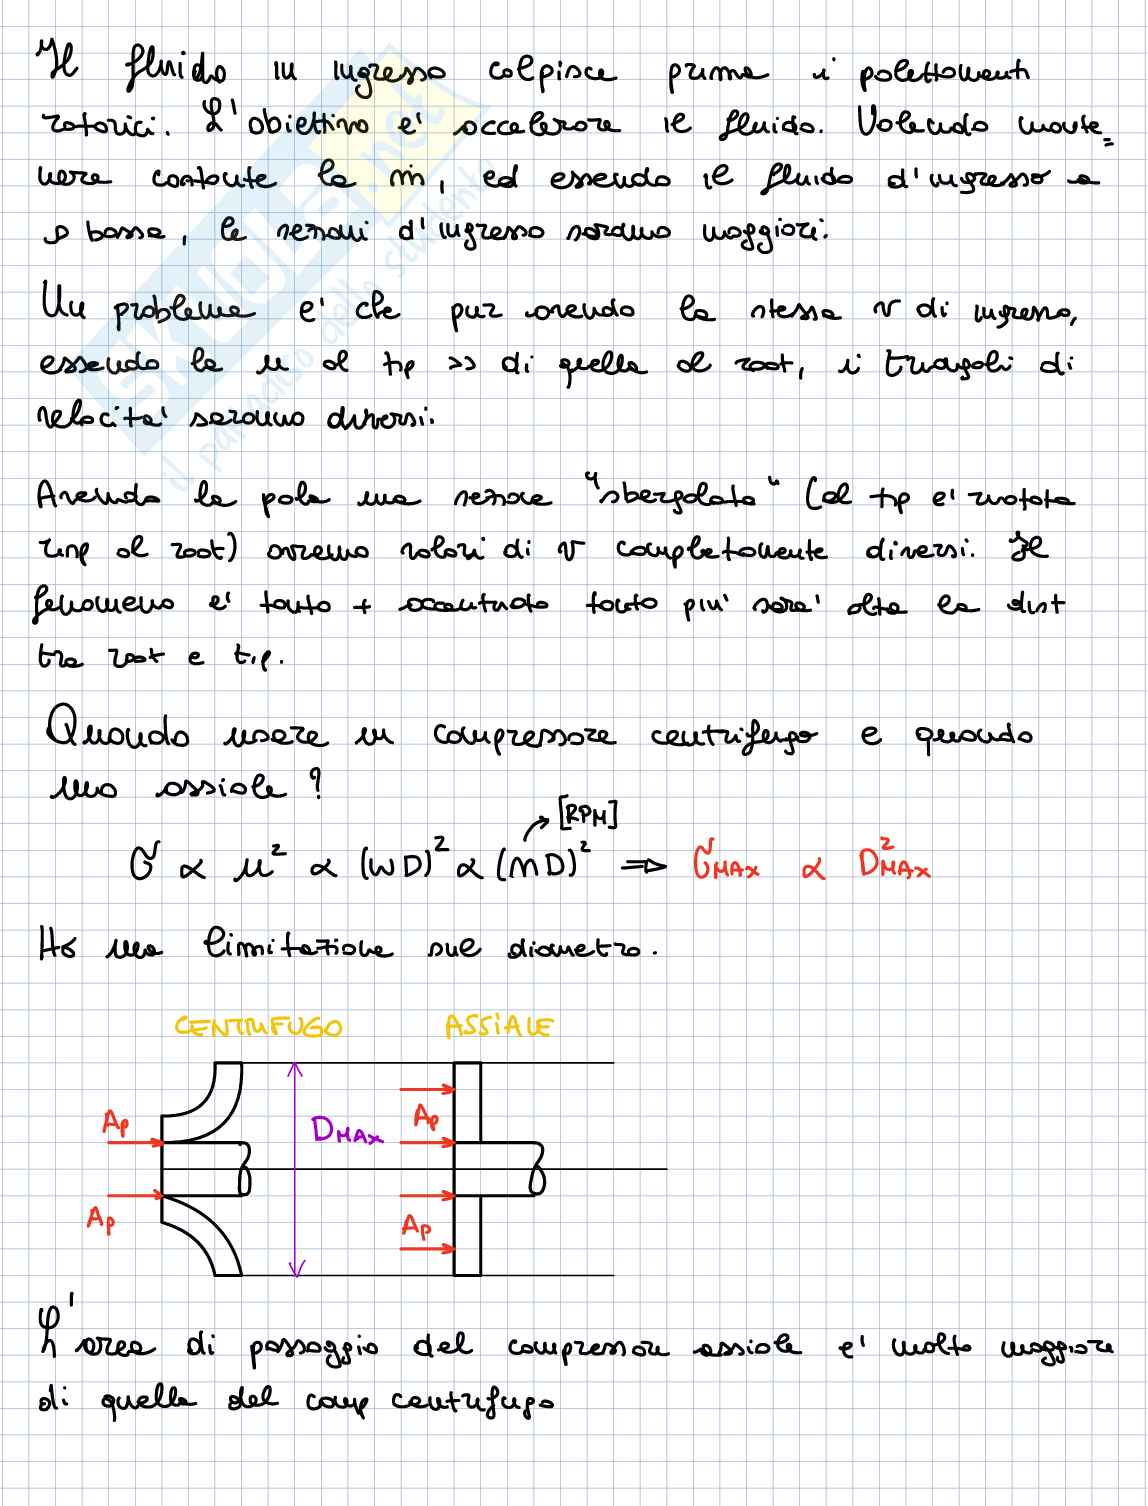 Il fluido in ingresso colpisce prima i palettamenti
rotorici. L'obiettivo e' accelerare il fluido. Volendo mante=
nere costante la ṁ, ed essendo il fluido d'ingresso a
ρ bassa, le sezioni d'ingresso saranno maggiori.
Un problema e' che pur avendo la stessa v di ingresso,
essendo la u al tip >> di quella al root, i triangoli di
velocita' saranno diversi.
Avendo la pala una sezione "sbergolata" (al tip e' ruotata
risp al root) avremo valori di v completamente diversi. Il
fenomeno e' tanto + accentuato tanto piu' sara' alta la dist
tra root e tip.
Quando usare un compressore centrifugo e quando
uno assiale?
[RPM]
σ ∝ u² ∝ (ωD)² ∝ (nD)² ⇒ σMAX ∝ D²MAX
Ho una limitazione sul diametro.
CENTRIFUGO ASSIALE
Ap DMAX Ap
Ap Ap
L'area di passaggio del compressore assiale e' molto maggiore
di quella del comp centrifugo
SKUOLA.net
il paradiso dello studente